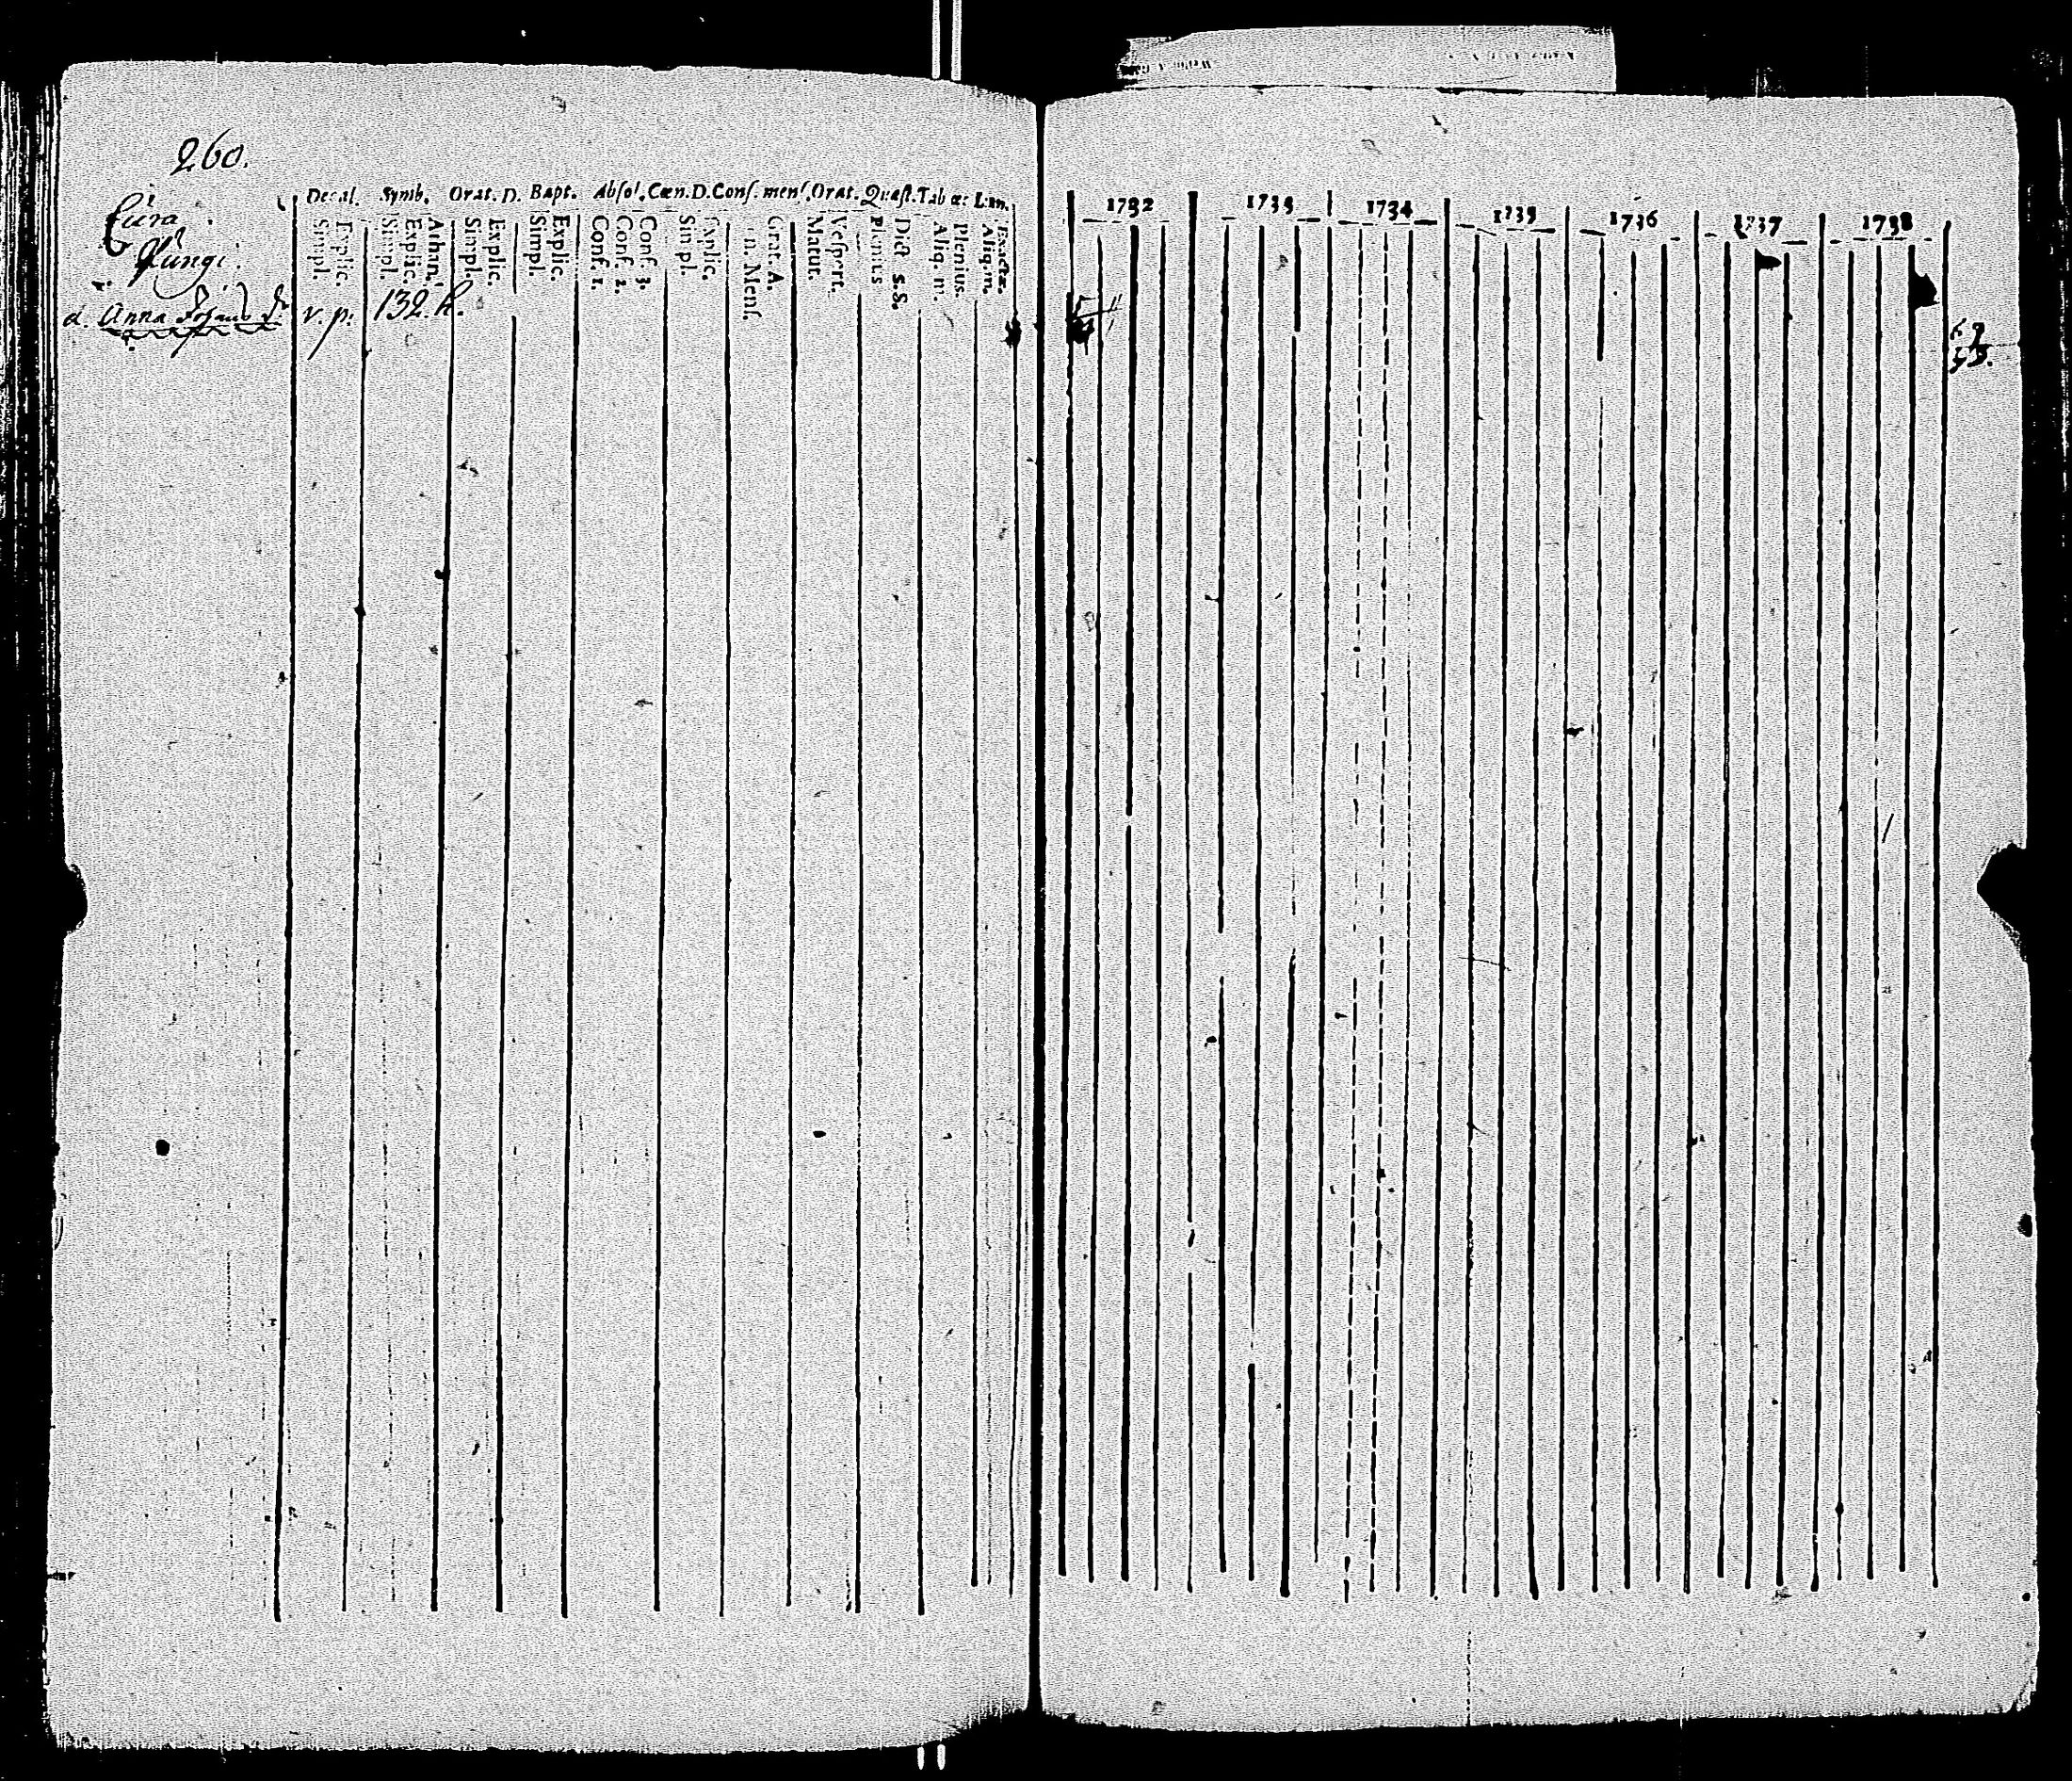 260.
Decal. Symb. Orat. D. Bapt. Absol. Cœn. D. Conf. menſ. Orat. Quæſt. Tab œc Lın.
Cura
Explic.
Simpl.
Athan.
Explic.
Simpl.
Explic.
Simpl.
Explic.
Simpl.
Conf. 3.
Conf. 2.
Conf. 1.
Explic.
Simpl.
Grat. A.
n. Menſ.
Veſpert.
Matut.
Dict S.S.
Plenius
Aliq. m.
Plenius.
Aliq. m.
Exactæ.
d. Anna v. p. 132. k.
1732 1733 1734 1735 1736 1737 1738